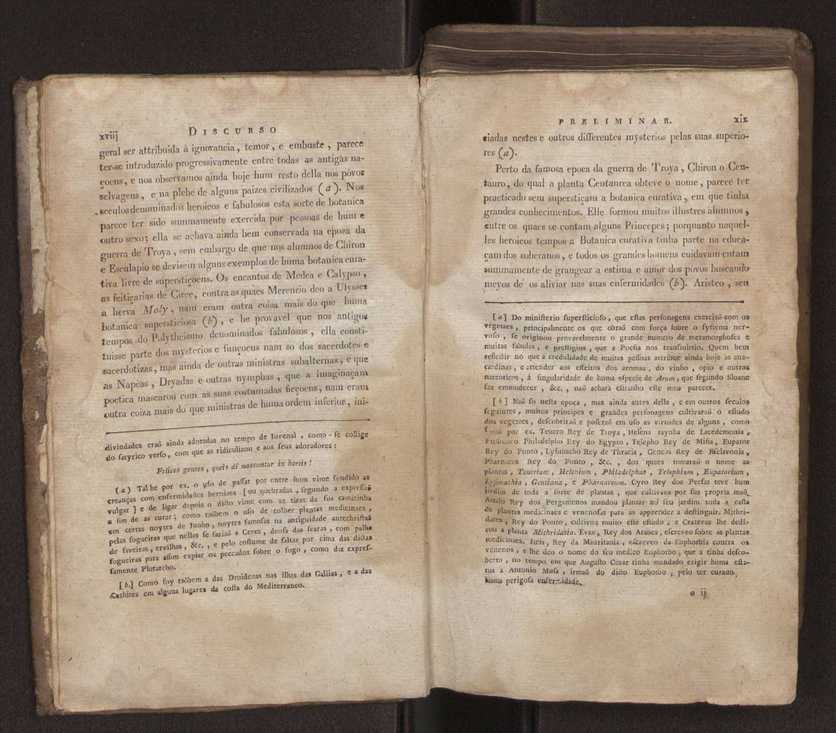 xviij DISCURSO
geral ser attribuida à ignorancia, temor, e embuste, parece
ter-se introduzido progressivamente entre todas as antigas na-
çoens, e nos observamos ainda hoje hum resto della nos povos
selvagens, e na plebe de alguns paizes civilizados (a). Nos
seculos denominados heroicos e fabulosos esta sorte de botanica
parece ter sido summamente exercida por pessoas de hum e
outro sexo; ella se achava ainda bem conservada na epoca da
guerra de Troya, sem embargo de que nos alumnos de Chiron
e Esculapio se devisem alguns exemplos de huma botanica cura-
tiva livre de superstiçoens. Os encantos de Medea e Calypso,
as feitiçarias de Circe, contra as quaes Mercurio deu a Ulysses
a herva Moly, nam eram outra coisa mais do que huma
botanica supersticiosa (b), e he provavel que nos antigos
tempos do Polytheismo denominados fabulosos, ella consti-
tuisse parte dos mysterios e funçoens nam so dos sacerdotes e
sacerdotizas, mas ainda de outras ministras subalternas, e que
as Napéas, Dryadas e outras nymphas, que a imaginaçam
poetica mascarou com as suas costumadas ficçoens, nam eram
outra coiza mais do que ministras de huma ordem inferior, ini-
divindades eraõ ainda adoradas no tempo de Juvenal, como-se collige
do satyrico verso, com que as ridiculizou e aos seus adoradores:
Felices gentes, queis di nascuntur in hortis!
(a) Tal he por ex. o uso de passar por entre hum vime fendido as
crianças com enfermidades herniosas [ou quebradas, segundo a expressaõ
vulgar] e de ligar depois o dito vime com as tiras da sua camizinha
a fim de as curar; como taõbem o uso de colher plantas medicinaes,
em certas noytes de Junho, noytes famosas na antiguidade antechristaã
pelas fogueiras que nellas se faziaõ a Ceres, deosa das searas, com palha
de faveiras, ervilhas, &c., e pelo costume de saltar por cima das ditas
fogueiras para assim expiar os peccados sobre o fogo, como diz expres-
samente Plutarcho.
[b] Como foy taõbem a das Druidesas nas ilhas das Gallias, e a das
Cabires em alguns lugares da costa do Mediterraneo.
PRELIMINAR. xix
ciadas nestes e outros differentes mysterios pelas suas superio-
res (a).
Perto da famosa epoca da guerra de Troya, Chiron o Cen-
tauro, do qual a planta Centaurea obteve o nome, parece ter
practicado sem supersticam a botanica curativa, em que tinha
grandes conhecimentos. Elle formou muitos illustres alumnos,
entre os quaes se contam alguns Principes; porquanto naquel-
les heroicos tempos a Botanica curativa tinha parte na educa-
çam dos soberanos, e todos os grandes homens cuidavam entam
summamente de grangear a estima e amor dos povos buscando
meyos de os aliviar nas suas enfermidades (b). Aristeo, seu
[a] Do ministerio supersticioso, que estas personagens exerciaõ com os
vegetaes, principalmente os que obraõ com força sobre o systema ner-
voso, se originou provavelmente o grande numero de metamorphoses e
muitas fabulas, e prestigios, que a Poesia nos transmittio. Quem bem
reflectir no que a credulidade de muitas pessoas attribue ainda hoje as ana-
cardinas, e attender aos effeitos dos aromas, do vinho, opio e outros
narcoticos, á singularidade de huma especie de Arum, que segundo Sloane
faz emmudecer, &c., naõ achará estranho este meu parecer.
[b] Naõ so nesta epoca, mas ainda antes della, e em outros seculos
seguintes, muitos principes e grandes personagens cultivaraõ o estudo
dos vegetaes, descobriraõ e puseraõ em uso as virtudes de alguns, como
foraõ por ex. Teucro Rey de Troya, Helena raynha de Lacedemonia,
Ptolomeo Philadelpho Rey do Egypto, Telepho Rey de Misia, Eupator
Rey do Ponto, Lysimacho Rey de Thracia, Gencio Rey de Esclavonia,
Pharnaces Rey do Ponto, &c., dos quaes tomaraõ o nome as
plantas, Teucrium, Helenium, Philadelphus, Telephium, Eupatorium,
Lysimachia, Gentiana, e Pharnaceum. Cyro Rey dos Persas teve hum
jardim de toda a sorte de plantas, que cultivava por sua propria maõ.
Attalo Rey dos Pergamenos mandou plantar no seu jardim toda a casta
de plantas medicinaes e venenosas para as aprender a destinguir. Mithri-
dates, Rey do Ponto, cultivou muito este estudo, e Cratevas lhe dedi-
cou a planta Mithridatia. Evax, Rey dos Arabes, escreveo sobre as plantas
medicinaes. Juba, Rey da Mauritania, escreveo da Euphorbia contra os
venenos, e lhe deo o nome do seu medico Euphorbo, que a tinha desco-
berto, no tempo, em que Augusto Cezar tinha mandado erigir huma esta-
tua a Antonio Musa, irmaõ do dito Euphorbo, pelo ter curado
huma perigosa enfermidade.
o ij